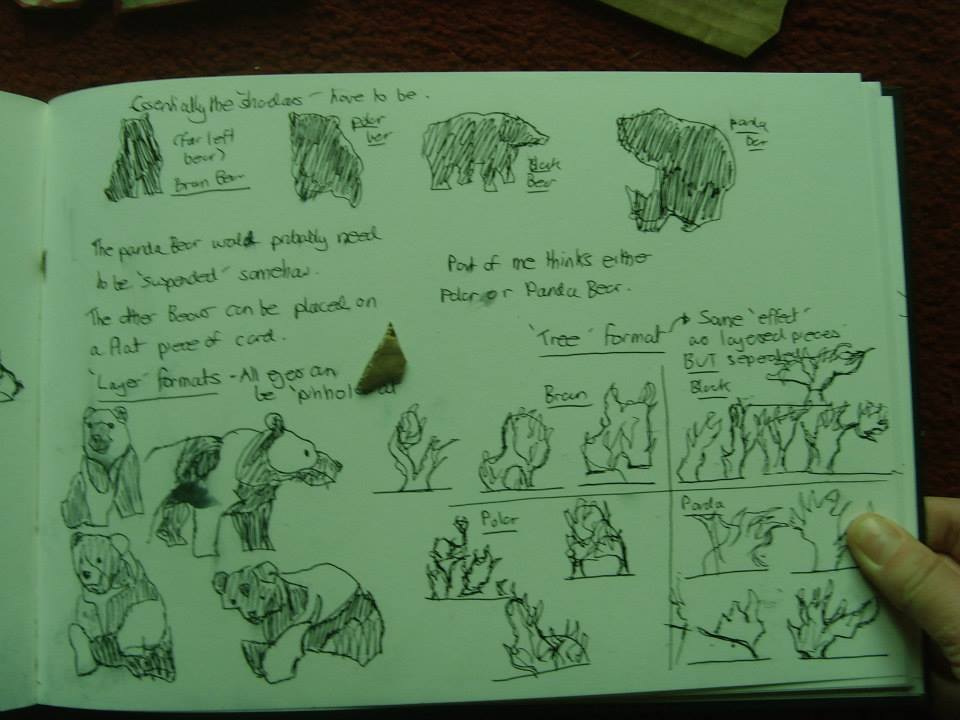 Essentially the "shadows" have to be.
(far left
bear)
Brown Bear
Polar
bear
Black
Bear
panda
bear
The panda Bear would probably need
to be "suspended" somehow.
The other Bears can be placed on
a flat piece of card.
Part of me thinks either
Polar or Panda Bear.
'Tree' format → Same 'effect'
as layered pieces
BUT seperated
'Layer' formats - All eyes can
be 'pinhol
Brown
Black
Polar
Panda